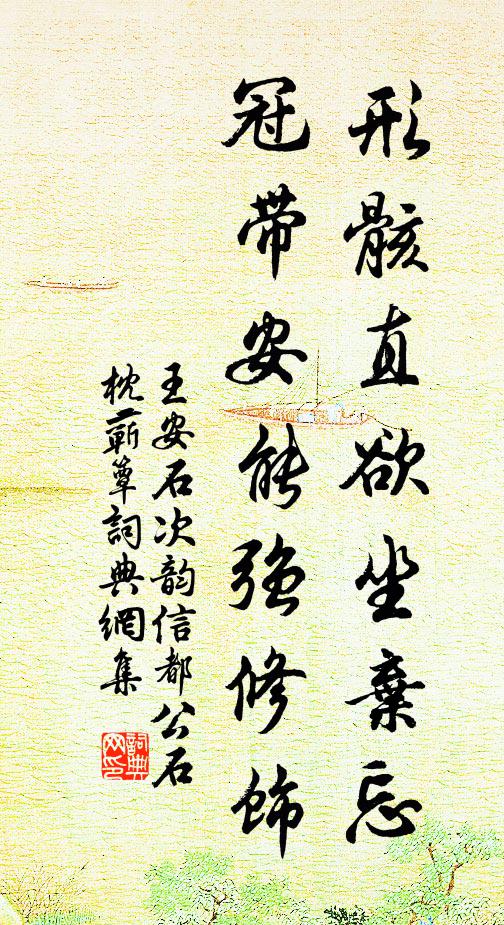 形骸直欲坐棄忘
冠帶安能強修飾
王安石次韵信都公石
枕蘄簟詞典網集
詞典
网印